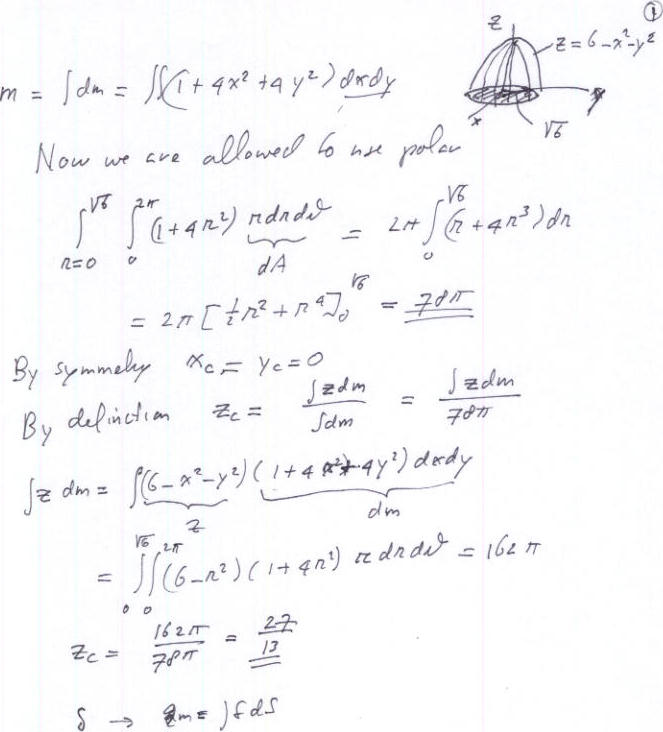 ①
z
z = 6 - x² - y²
y
x
√6
m = ∫dm = ∬(1 + 4x² + 4y²) dxdy
Now we are allowed to use polar
∫_{r=0}^{√6} ∫_0^{2π} (1 + 4r²) r dr dϑ = 2π ∫_0^{√6} (r + 4r³) dr
dA
= 2π [½r² + r⁴]_0^{√6} = 78π
By symmetry x_c = y_c = 0
By definction z_c = ∫z dm / ∫dm = ∫z dm / 78π
∫z dm = ∫(6 - x² - y²) (1 + 4x² + 4y²) dxdy
z dm
= ∫_0^{√6} ∫_0^{2π} (6 - r²) (1 + 4r²) r dr dϑ = 162π
z_c = 162π / 78π = 27/13
δ → m = ∫f dS